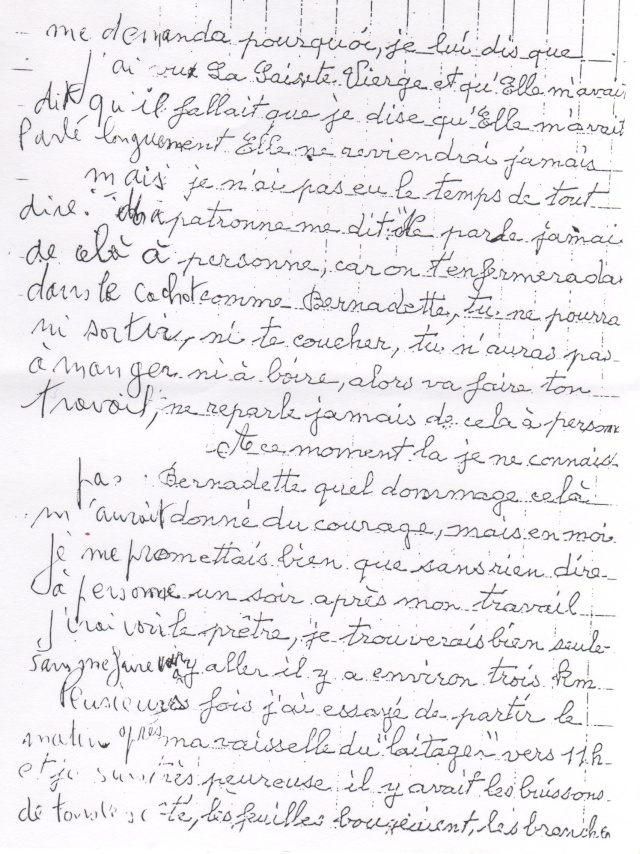 me demanda pourquoi, je lui dis que
j'ai vu La Sainte Vierge et qu'Elle m'avai
dit qu'il fallait que je dise qu'Elle m'avait
Parlé longuement Elle ne reviendrai jamais
mais je n'ai pas eu le temps de tout
dire. Ma patronne me dit "Ne parle jamai
de celà à personne, car on t'enfermera da
dans le Cachot comme Bernadette, tu ne pourra
ni sortir, ni te coucher, tu n'auras pas
à manger ni à boire, alors va faire ton
travail, ne reparle jamais de cela à personne
A ce moment la je ne connais
pas Bernadette quel dommage celà
m'aurait donné du courage, mais en moi
je me promettais bien que sans rien dire
à personne un soir après mon travail
j'irai voir le prêtre, je trouverais bien seule
y aller il y a environ trois km
Plusieurs fois j'ai essayé de partir le
matin après ma vaisselle du "laitager" vers 11h
et je suis très peureuse il y avait les buissons
de côté, les feuilles bougeaient, les branches